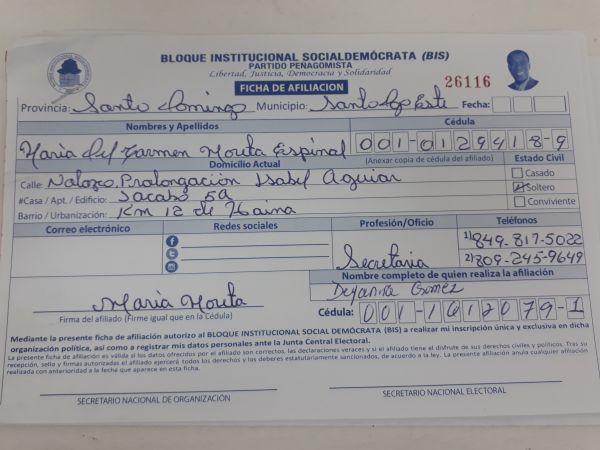 BLOQUE INSTITUCIONAL SOCIALDEMÓCRATA (BIS)
PARTIDO PEÑAGOMISTA
Libertad, Justicia, Democracia y Solidaridad
FICHA DE AFILIACION
26116
Provincia: Santo Domingo Municipio: Santo Dgo Este Fecha:
Nombres y Apellidos Cédula
Maria Del Carmen Morita Espinal 001-0129418-9
Domicilio Actual (Anexar copia de cédula del afiliado) Estado Civil
Calle: Prolongación Isabel Aguiar Casado
#Casa / Apt. / Edificio: 5a Soltero
Barrio / Urbanización: Km 12 de Haina Conviviente
Correo electrónico Redes sociales Profesión/Oficio Teléfonos
1) 849-817-5022
Secretaria 2) 809-245-9649
Nombre completo de quien realiza la afiliación
Deyanira Gomez
Maria Morita
Cédula: 001-1612079-1
Firma del afiliado (Firme igual que en la Cédula)
Mediante la presente ficha de afiliación autorizo al BLOQUE INSTITUCIONAL SOCIAL DEMÓCRATA (BIS) a realizar mi inscripción única y exclusiva en dicha
organización política, así como a registrar mis datos personales ante la Junta Central Electoral.
La presente ficha de afiliación es válida si los datos ofrecidos por el afiliado son correctos, las declaraciones veraces y si el afiliado tiene el disfrute de sus derechos civiles y políticos. Tras su
recepción, sello y firmas autorizadas el afiliado ejercerá todos los derechos y los deberes estatutariamente sancionados, de acuerdo a la ley. La presente afiliación anula cualquier afiliación
realizada con anterioridad a la fecha que aparece en esta ficha.
SECRETARIO NACIONAL DE ORGANIZACIÓN SECRETARIO NACIONAL ELECTORAL